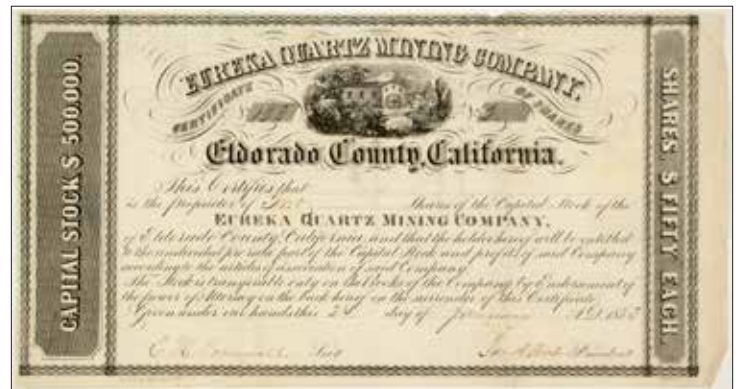 CAPITAL STOCK $ 500.000.
EUREKA QUARTZ MINING COMPANY.
CERTIFICATE OF SHARES
Eldorado County, California.
This Certifies that
is the proprietor of Shares of the Capital Stock of the
EUREKA QUARTZ MINING COMPANY,
of Eldorado County, California, and that the holder hereof will be entitled
to the undivided pro rata part of the Capital Stock and profits of said Company
according to the articles of association of said Company.
The Stock is transferable only on the Books of the Company by Endorsement of
the power of Attorney on the back hereof on the surrender of this Certificate
Given under our hands this day of A.D. 185
Secy President
SHARES, $ FIFTY EACH.